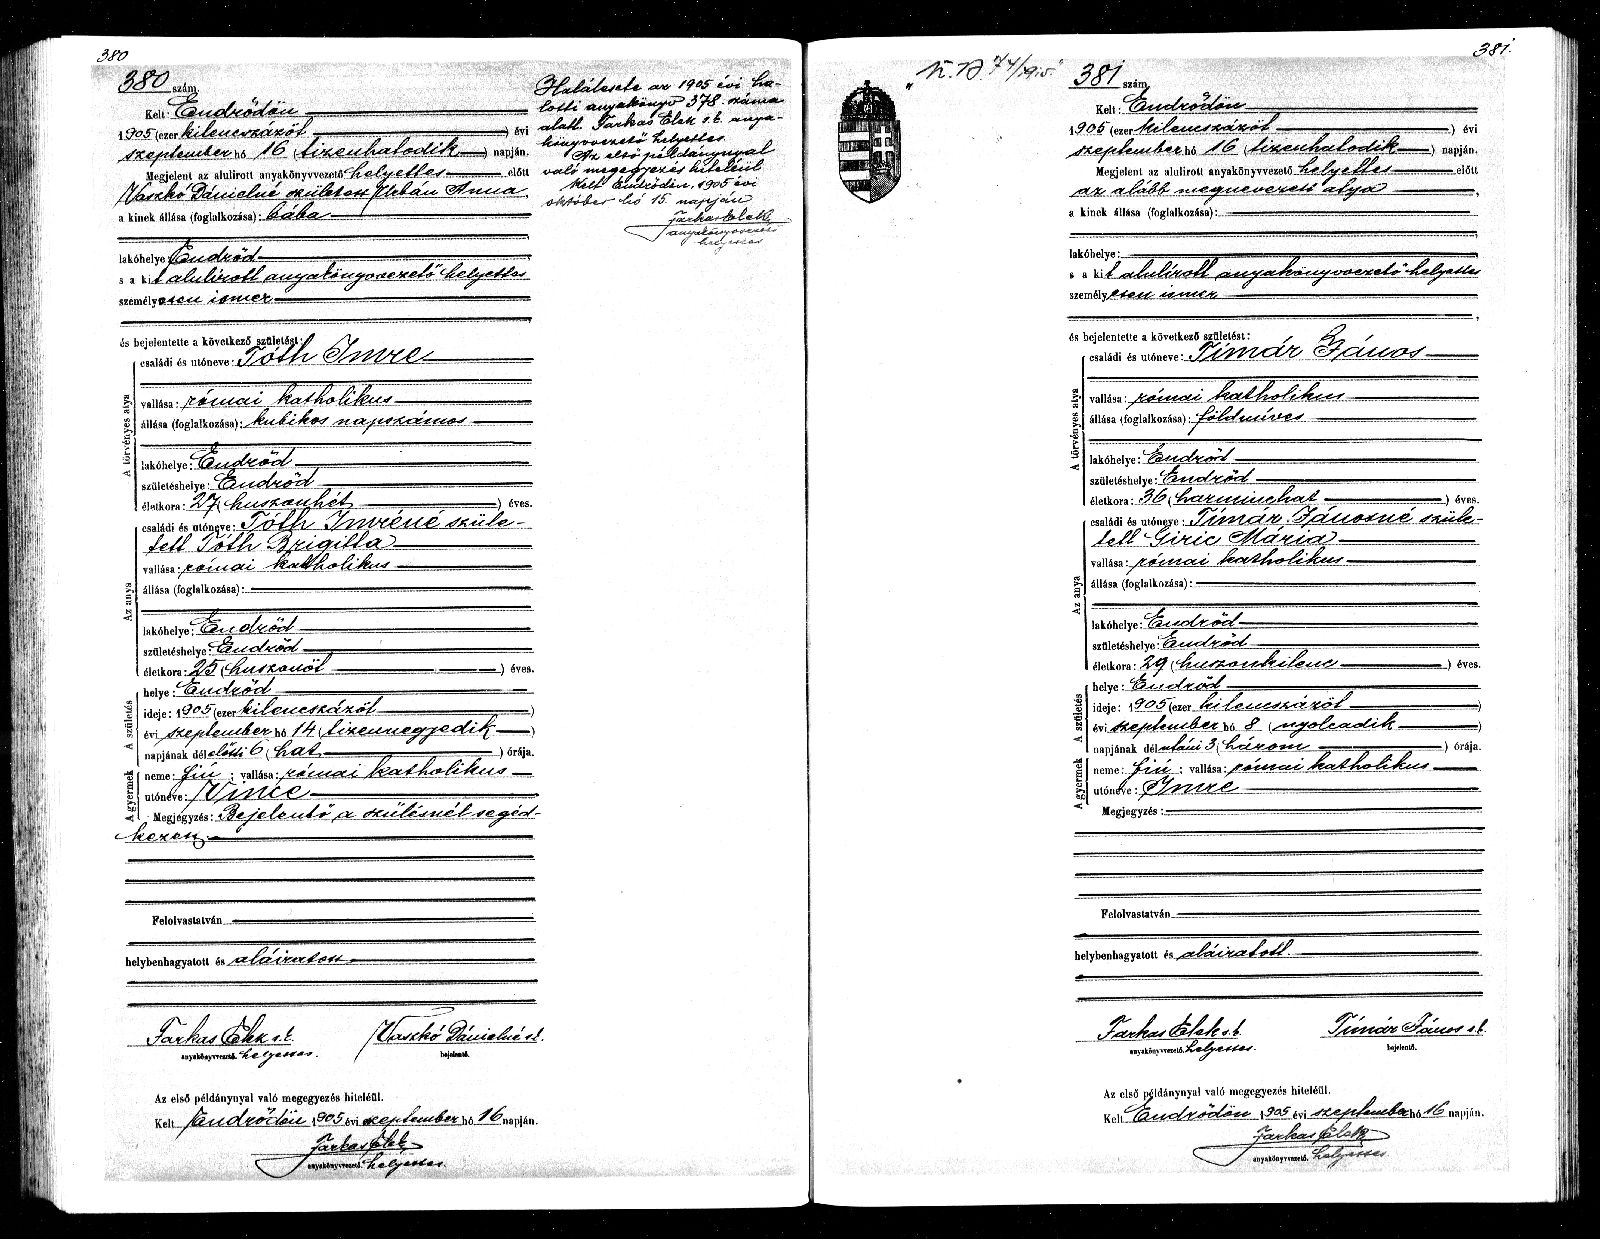 380
380 szám.
Kelt: Endrődön
1905 (ezer kilencszázöt) évi
szeptember hó 16 (tizenhatodik) napján.
Megjelent az alulirott anyakönyvvezető helyettes előtt
Vaszkó Dánielné született Urbán Anna
a kinek állása (foglalkozása): bába
lakóhelye Endrőd
s a kit alulírott anyakönyvvezető helyettes
személyesen ismer
és bejelentette a következő születést:
A törvényes atya
családi és utóneve: Tóth Imre
vallása: római katholikus
állása (foglalkozása): kubikos napszámos
lakóhelye: Endrőd
születéshelye: Endrőd
életkora: 27 (huszonhét) éves.
Az anya
családi és utóneve: Tóth Imréné szüle-
tett Tóth Brigitta
vallása: római katholikus
állása (foglalkozása):
lakóhelye: Endrőd
születéshelye: Endrőd
életkora: 25 (huszonöt) éves.
A születés
helye: Endrőd
ideje: 1905 (ezer kilencszázöt)
évi szeptember hó 14 (tizennegyedik)
napjának délelőtti 6 (hat) órája.
A gyermek
neme: fiú; vallása: római katholikus
utóneve: Vince
Megjegyzés: Bejelentő a szülésnél segéd-
kezett
Felolvastatván
helybenhagyatott és aláiratott
Farkas Elek s.k. Vaszkó Dánielné s.k.
anyakönyvvezető. helyettes. bejelentő.
Az első példánynyal való megegyezés hiteléül.
Kelt Endrődön 1905 évi szeptember hó 16 napján.
Farkas Elek
anyakönyvvezető. helyettes
Halálesete az 1905 évi ha-
lotti anyakönyv 378. száma
alatt. Farkas Elek s.k. anya-
könyvvezető helyettes.
Az első példánynyal
való megegyezés hiteléül
Kelt Endrődön, 1905 évi
október hó 15. napján
Farkas Elek
anyakönyvvezető
helyettes
381.
381 szám.
Kelt: Endrődön
1905 (ezer kilencszázöt) évi
szeptember hó 16 (tizenhatodik) napján.
Megjelent az alulirott anyakönyvvezető helyettes előtt
az alább megnevezett atya
a kinek állása (foglalkozása):
lakóhelye:
s a kit alulírott anyakönyvvezető helyettes
személyesen ismer
és bejelentette a következő születést:
A törvényes atya
családi és utóneve: Tímár János
vallása: római katholikus
állása (foglalkozása): földmíves
lakóhelye: Endrőd
születéshelye: Endrőd
életkora: 36 (harminchat) éves.
Az anya
családi és utóneve: Tímár Jánosné szüle-
tett Giric Mária
vallása: római katholikus
állása (foglalkozása):
lakóhelye: Endrőd
születéshelye: Endrőd
életkora: 29 (huszonkilenc) éves.
A születés
helye: Endrőd
ideje: 1905 (ezer kilencszázöt)
évi szeptember hó 8 (nyolcadik)
napjának délutáni 3 (három) órája.
A gyermek
neme: fiú; vallása: római katholikus
utóneve: Imre
Megjegyzés:
Felolvastatván
helybenhagyatott és aláiratott.
Farkas Elek s.k. Tímár János s.k.
anyakönyvvezető. helyettes. bejelentő.
Az első példánynyal való megegyezés hiteléül.
Kelt Endrődön 1905 évi szeptember hó 16 napján.
Farkas Elek
anyakönyvvezető. helyettes